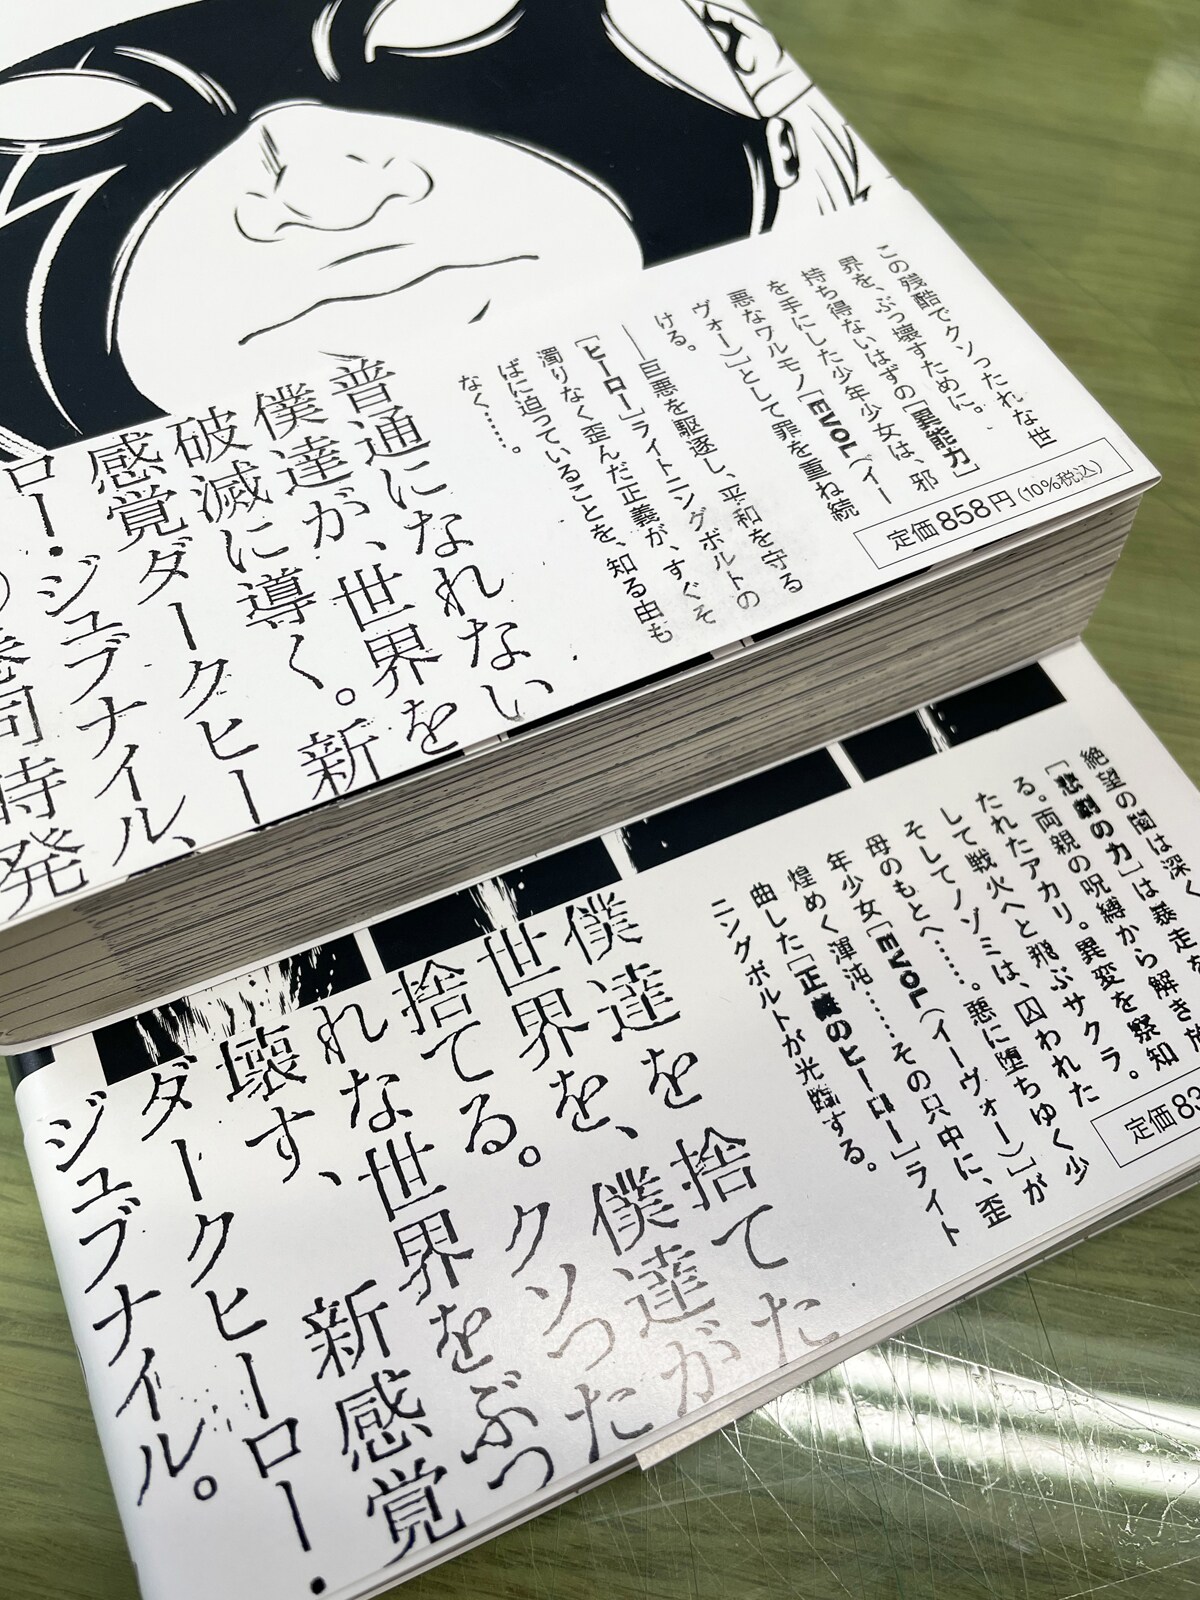 この残酷でクソったれな世
界を、ぶっ壊すために。
持ち得ないはずの[異能力]
を手にした少年少女は、邪
悪なワルモノ[EVOL(イー
ヴォー)]として罪を重ね続
ける。
――巨悪を駆逐し、平和を守る
[ヒーロー]ライトニングボルトの
濁りなく歪んだ正義が、すぐそ
ばに迫っていることを、知る由も
なく……。
定価858円(10%税込)
普通になれない
僕達が、世界を
破滅に導く。新
感覚ダークヒー
ロー・ジュブナイル、
巻同時発
絶望の闇は深く
[悲劇の力]は暴走を解き放
る。両親の呪縛から
たれたアカリ。異変を察知
して戦火へと飛ぶサクラ。
そしてノゾミは、囚われた
母のもとへ……。悪に堕ちゆく少
年少女[EVOL(イーヴォー)]が
煌めく渾沌……その只中に、歪
曲した[正義のヒーロー]ライト
ニングボルトが光臨する。
定価83
僕達を捨てた
世界を、僕達が
捨てる。クソった
れな世界をぶっ
壊す、新感覚
ダークヒーロー・
ジュブナイル。